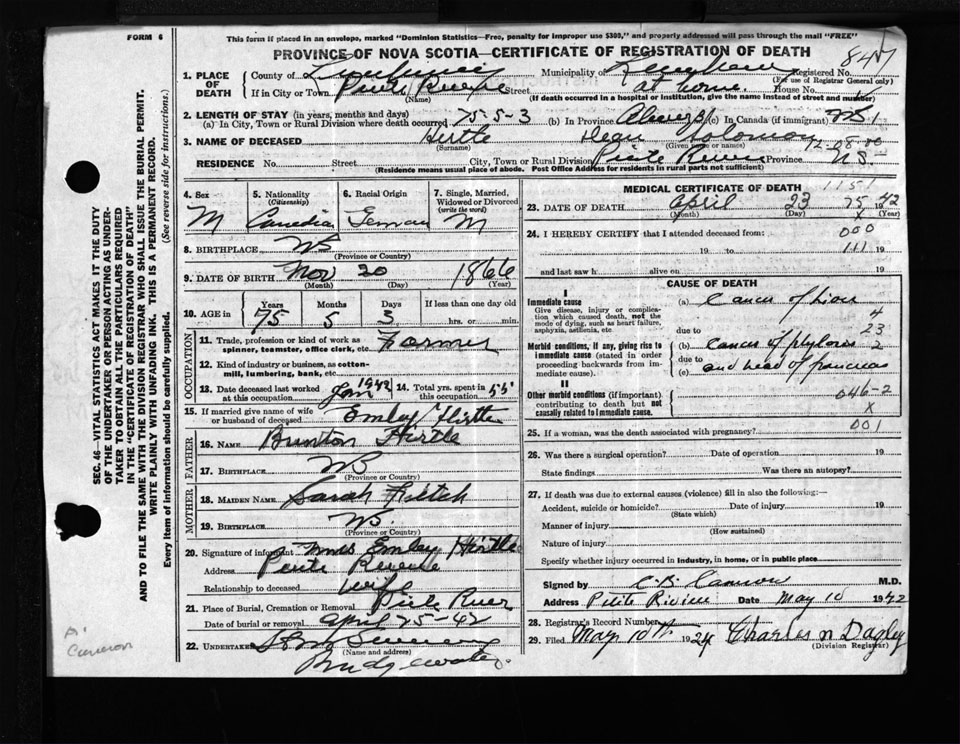 FORM 6
This form if placed in an envelope, marked "Dominion Statistics—Free, penalty for improper use $300," and properly addressed will pass through the mail "FREE"
PROVINCE OF NOVA SCOTIA—CERTIFICATE OF REGISTRATION OF DEATH
1. PLACE OF DEATH
County of
Municipality of
Registered No.
(For use of Registrar General only)
If in City or Town
Street at home. House No.
(Name)
(If death occurred in a hospital or institution, give the name instead of street and number)
2. LENGTH OF STAY (in years, months and days)
(a) In City, Town or Rural Division where death occurred 75-5-3 (b) In Province Always (c) In Canada (if immigrant)
3. NAME OF DECEASED Hirtle Dean Solomon
(Surname) (Given name or names)
RESIDENCE No. Street City, Town or Rural Division Petite Riviere Province N.S.
(Residence means usual place of abode. Post Office Address for residents in rural parts not sufficient)
4. Sex M
5. Nationality (Citizenship) Canadian
6. Racial Origin German
7. Single, Married, Widowed or Divorced (write the word) M
8. BIRTHPLACE NS
(Province or Country)
9. DATE OF BIRTH Nov 20 1866
(Month) (Day) (Year)
10. AGE in Years Months Days If less than one day old
75 5 3 hrs. or min.
OCCUPATION
11. Trade, profession or kind of work as spinner, teamster, office clerk, etc. Farmer
12. Kind of industry or business, as cotton-mill, lumbering, bank, etc.
13. Date deceased last worked at this occupation Jan 1942 14. Total yrs. spent in this occupation 55
15. If married give name of wife or husband of deceased Emley Hirtle
FATHER
16. NAME Hirtle
17. BIRTHPLACE NS
(Province or Country)
MOTHER
18. MAIDEN NAME Sarah
19. BIRTHPLACE N.S.
(Province or Country)
20. Signature of informant Mrs Emley Hirtle
Address Petite Riviere
Relationship to deceased wife
21. Place of Burial, Cremation or Removal
Date of burial or removal April 25-42
22. UNDERTAKER
(Name and address)
Bridgewater.
MEDICAL CERTIFICATE OF DEATH
1151
23. DATE OF DEATH April 23 75 1942
(Month) (Day) (Year)
X
24. I HEREBY CERTIFY that I attended deceased from: 000
19 to 111 19
and last saw h alive on 19
CAUSE OF DEATH
I
Immediate cause
Give disease, injury or complication which caused death, not the mode of dying, such as heart failure, asphyxia, asthenia, etc.
(a) Cancer of Liver
4
due to 23
Morbid conditions, if any, giving rise to immediate cause (stated in order proceeding backwards from immediate cause).
(b) Cancer of pylorus 2
due to
(c) and head of pancreas
II
Other morbid conditions (if important) contributing to death but not causally related to immediate cause.
046-2
X
001
25. If a woman, was the death associated with pregnancy?
26. Was there a surgical operation? Date of operation 19
State findings Was there an autopsy?
27. If death was due to external causes (violence) fill in also the following:—
Accident, suicide or homicide? Date of injury 19
(State which)
Manner of injury
(How sustained)
Nature of injury
Specify whether injury occurred in industry, in home, or in public place
Signed by M.D.
Address Petite Riviere Date May 10 1942
28. Registrar's Record Number
29. Filed May 10th 19 Charles N Dagley
(Division Registrar)
SEC. 46—VITAL STATISTICS ACT MAKES IT THE DUTY
OF THE UNDERTAKER OR PERSON ACTING AS UNDER-
TAKER TO OBTAIN ALL THE PARTICULARS REQUIRED
IN THE "CERTIFICATE OF REGISTRATION OF DEATH"
AND TO FILE THE SAME WITH THE DIVISION REGISTRAR WHO SHALL ISSUE THE BURIAL PERMIT.
WRITE PLAINLY WITH UNFADING INK. THIS IS A PERMANENT RECORD.
Every item of information should be carefully supplied. (See reverse side for instructions.)
Cameron